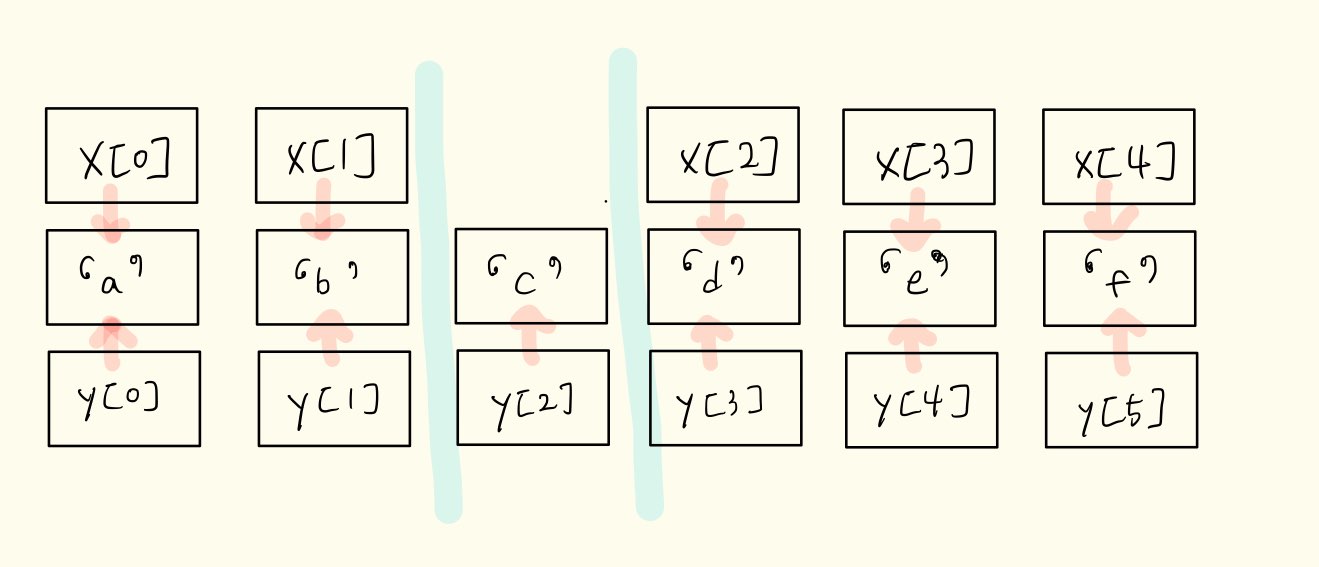 X[0] X[1] X[2] X[3] X[4]
'a' 'b' 'c' 'd' 'e' 'f'
y[0] y[1] y[2] y[3] y[4] y[5]